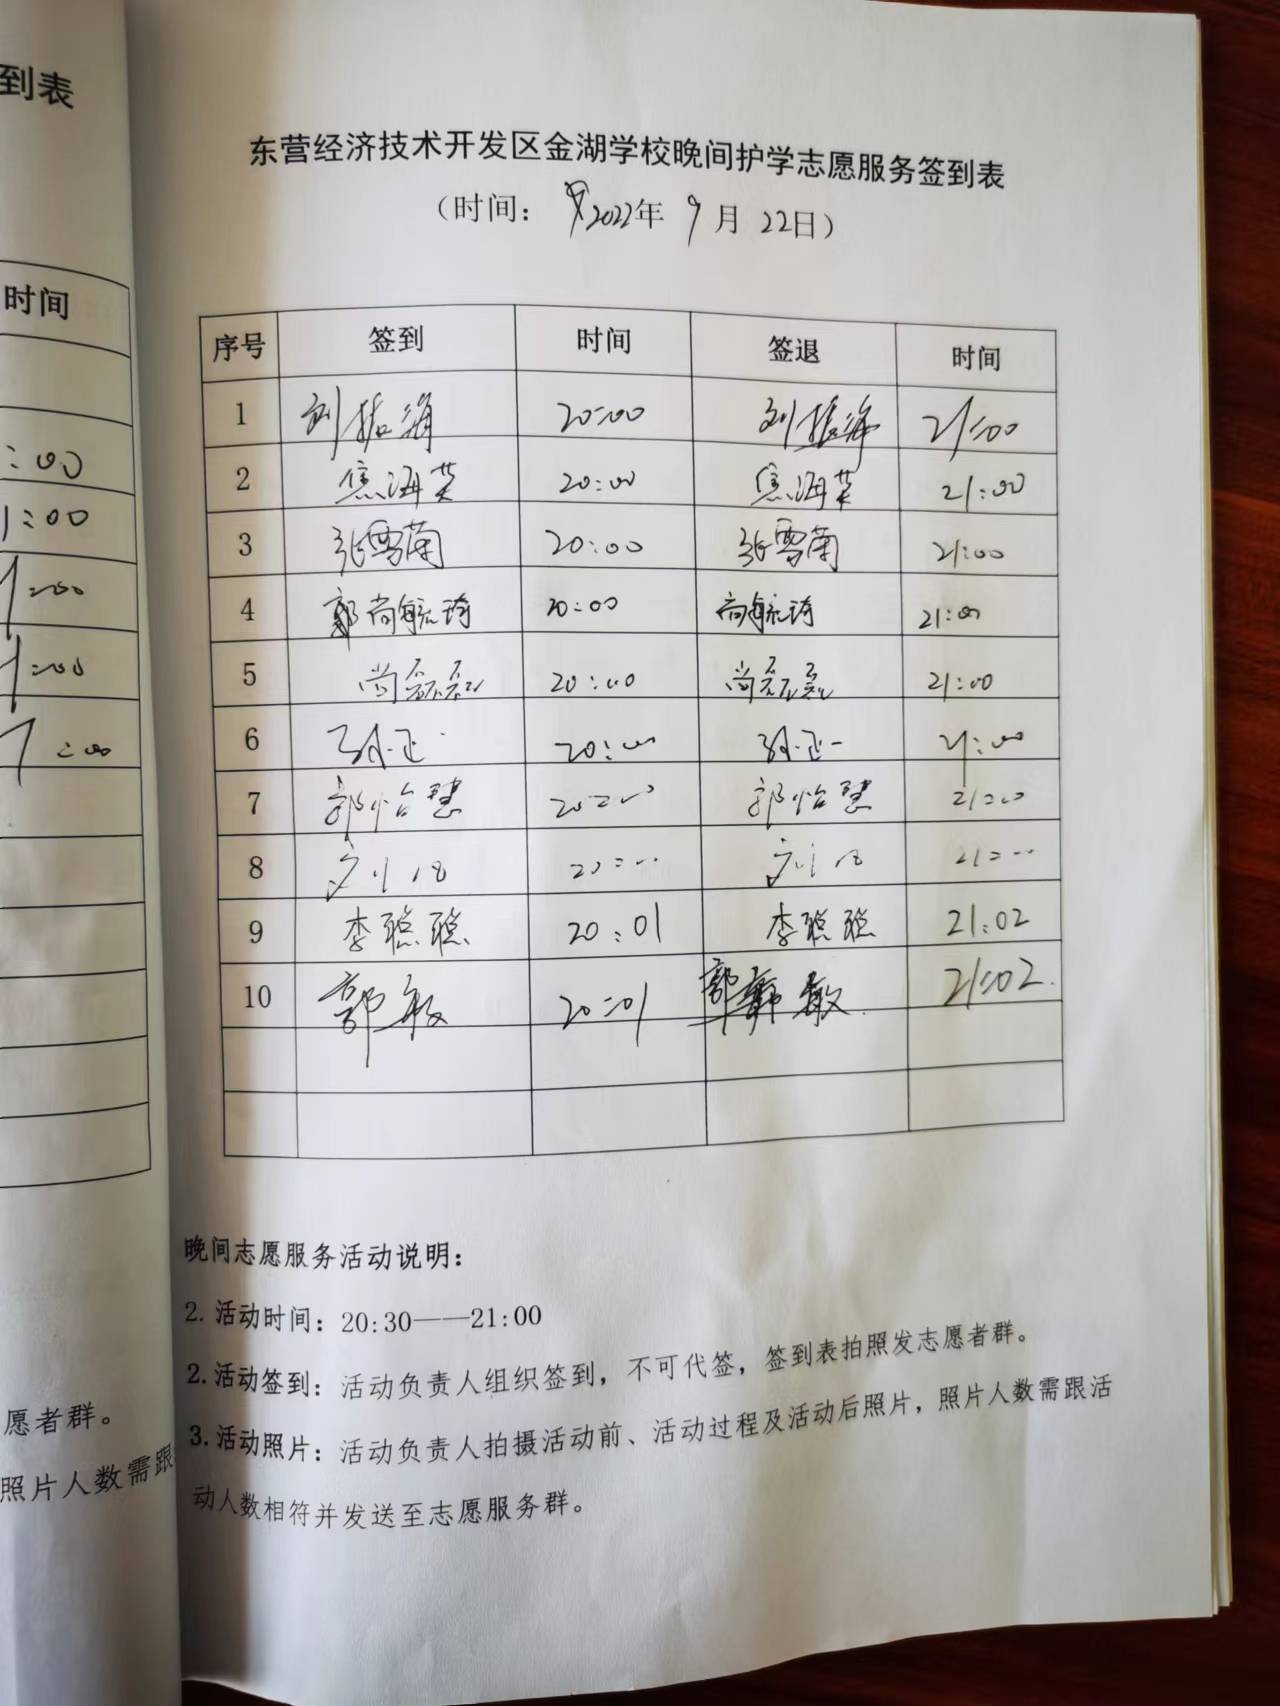 到表
时间
:00
1:00
1:00
1:00
1:00
愿者群。
照片人数需跟
东营经济技术开发区金湖学校晚间护学志愿服务签到表
（时间： 2022年 9月 22日）
序号 签到 时间 签退 时间
1 刘振海 20:00 刘振海 21:00
2 焦海英 20:00 焦海英 21:00
3 张雪菊 20:00 张雪菊 21:00
4 郭尚毓琦 20:00 尚毓琦 21:00
5 尚磊磊 20:00 尚磊磊 21:00
6 20:00 21:00
7 郭怡慧 20:00 郭怡慧 21:00
8 20:00 21:00
9 李聪聪 20:01 李聪聪 21:02
10 郭敏 20:01 郭敏 21:02.
晚间志愿服务活动说明：
2. 活动时间：20:30——21:00
2. 活动签到：活动负责人组织签到，不可代签，签到表拍照发志愿者群。
3. 活动照片：活动负责人拍摄活动前、活动过程及活动后照片，照片人数需跟活
动人数相符并发送至志愿服务群。